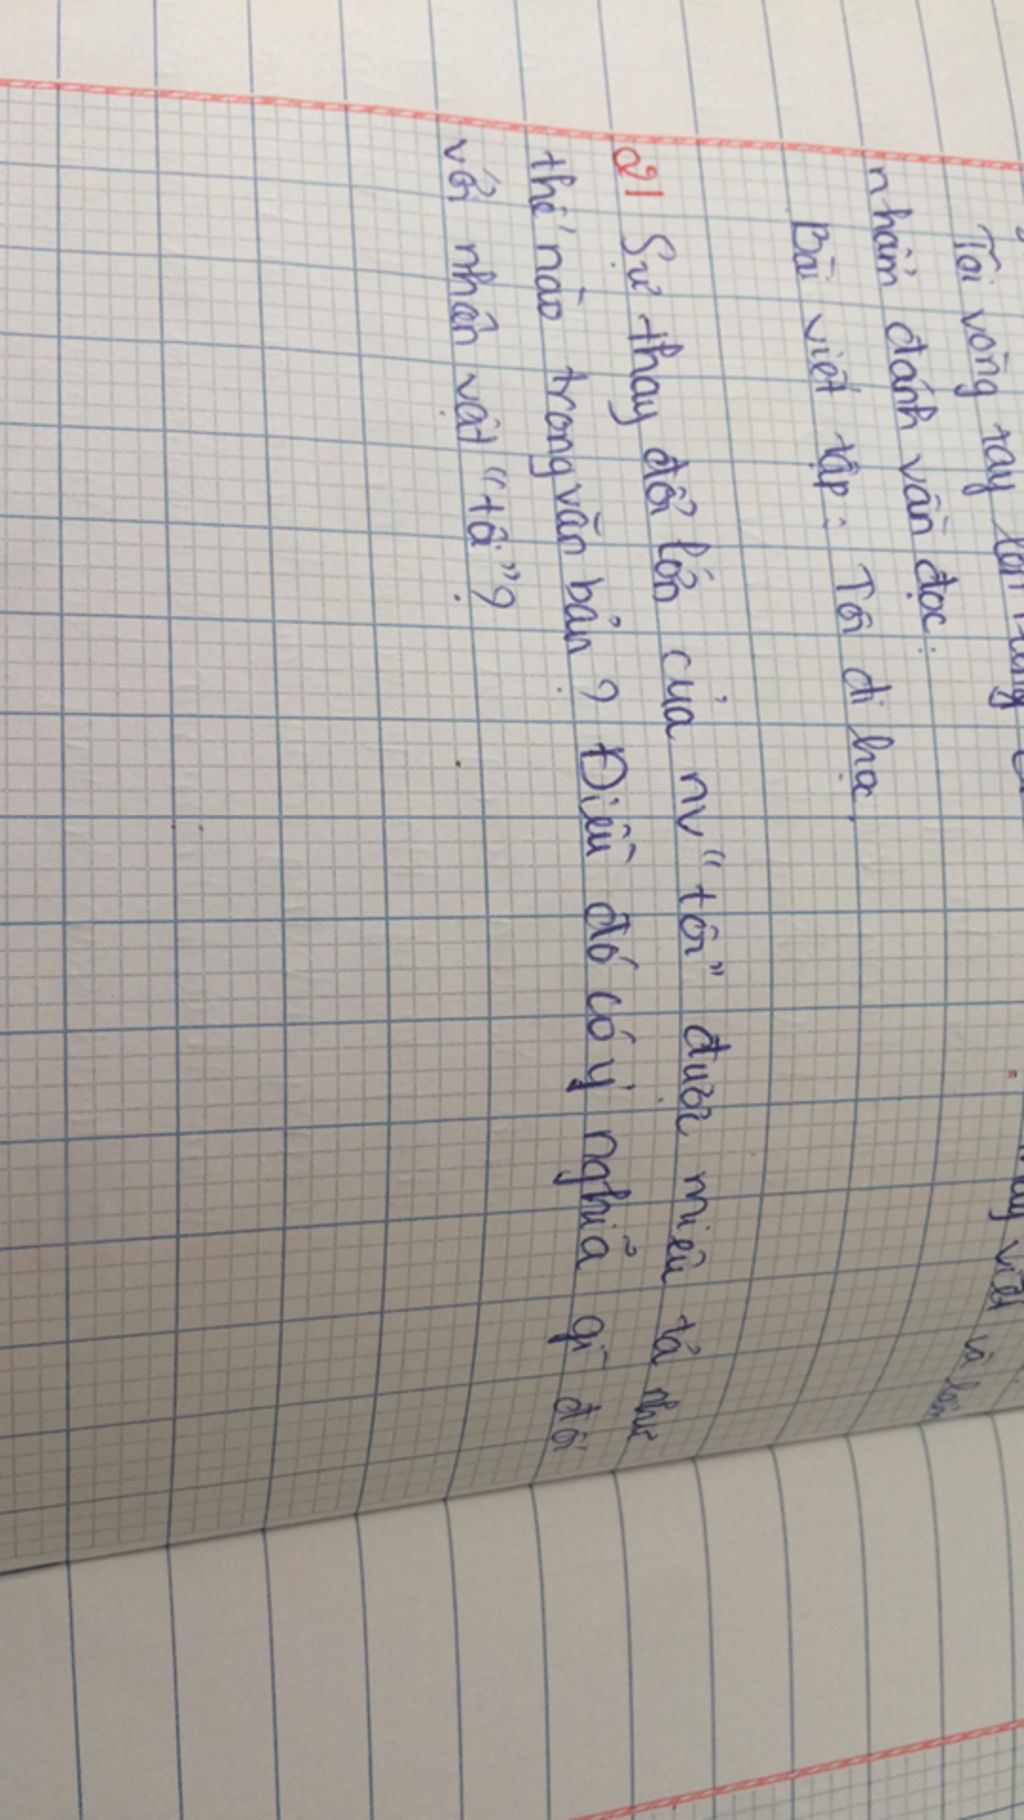 Tôi vòng tay lên
viết và lẩm
nhẩm đánh vần đọc:
Bài viết tập: Tôi đi học.
2/ Sự thay đổi lớn của nv "tôi" được miêu tả như
thế nào trong văn bản? Điều đó có ý nghĩa gì đối
với nhân vật "tôi"?